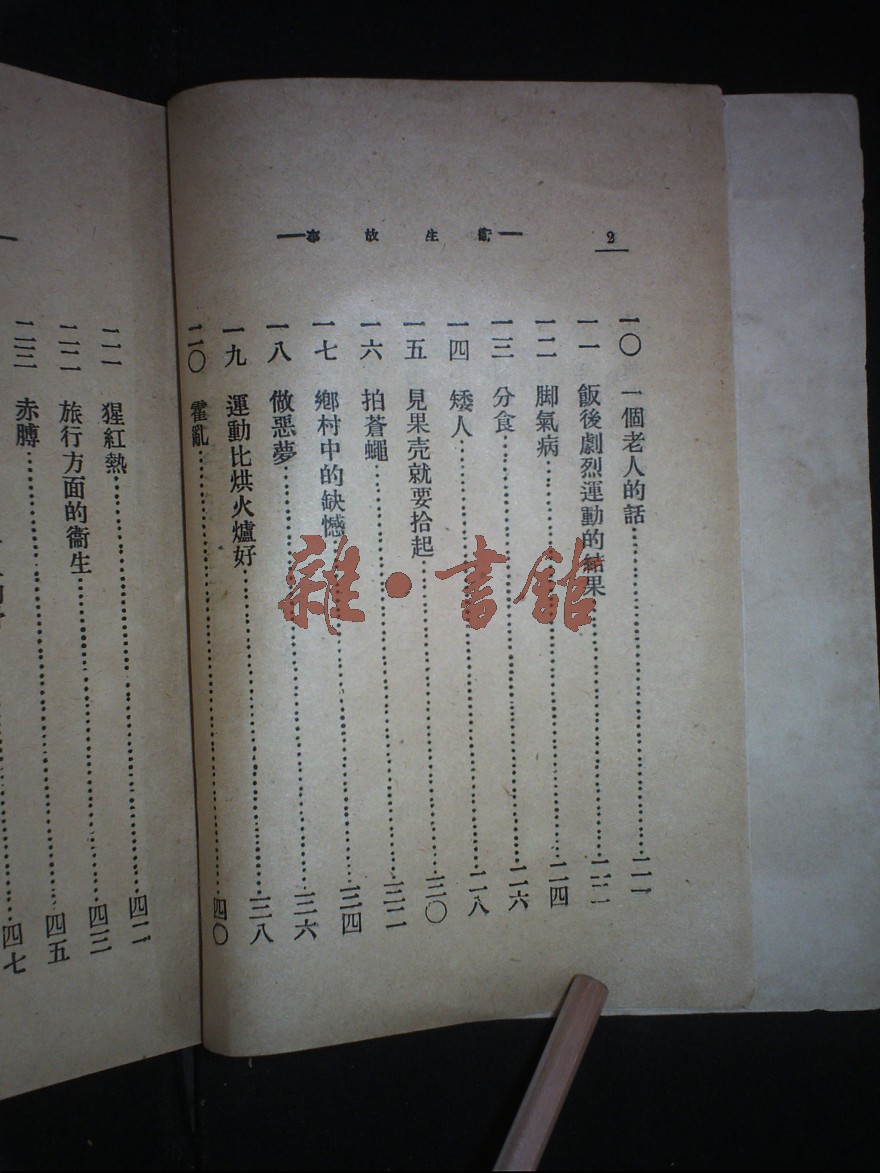 2
衞生故事
一〇 一個老人的話……二一
一一 飯後劇烈運動的結果……二二
一二 脚氣病……二四
一三 分食……二六
一四 矮人……二八
一五 見果壳就要拾起……三〇
一六 拍蒼蠅……三二
一七 鄉村中的缺憾……三四
一八 做惡夢……三六
一九 運動比烘火爐好……三八
二〇 霍亂……四〇
二一 猩紅熱……四二
二二 旅行方面的衞生……四三
二三 赤膊……四五
四七
雜·書館